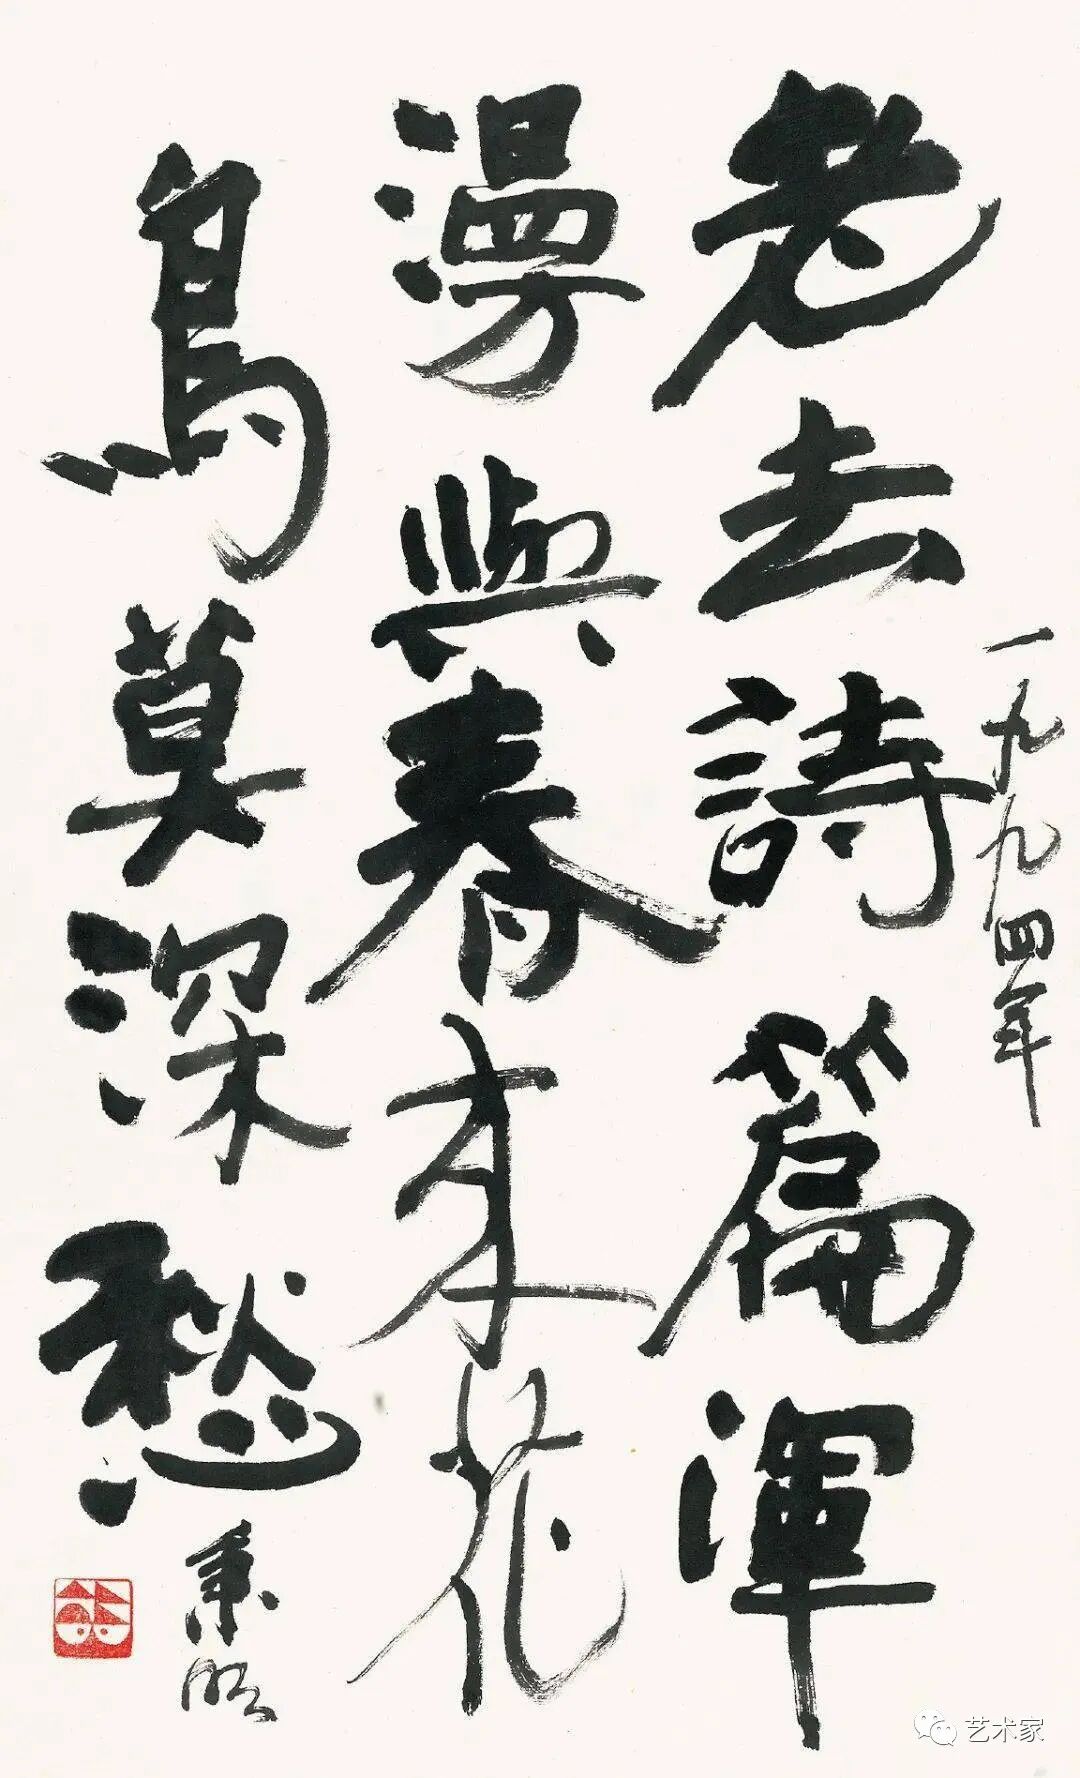 一九九四年
老去詩篇渾
漫與春来花
鳥莫深愁
秉明
艺术家